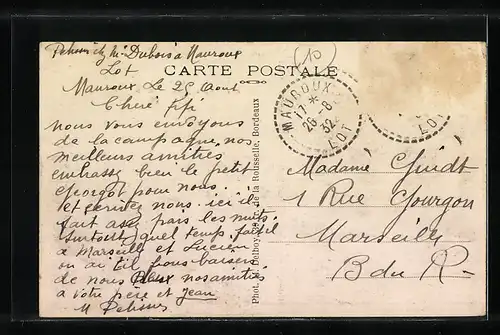 Pelissier chez Mr Dubois à Mauroux
Lot
CARTE POSTALE
Mauroux, Le 25 Aout
Chère fifi
nous vous envoyons
de la campagne nos
meilleurs amitiés
embrasse bien le petit
georgot pour nous.
et ecrivez nous. ici il
fait assez frais les nuits
surtout, quel temps fait il
a Marseille et Lucien
ou ai til, bons baisers
de nous deux nos amitiés
a votre père et Jean
M Pelissier
Phot. M. Delboy, de la Rousselle, Bordeaux
MAUROUX
17 *
26 - 8
32
LOT
LOT
10
Madame Guidt
1 Rue Gourgon
Marseille
B du R-